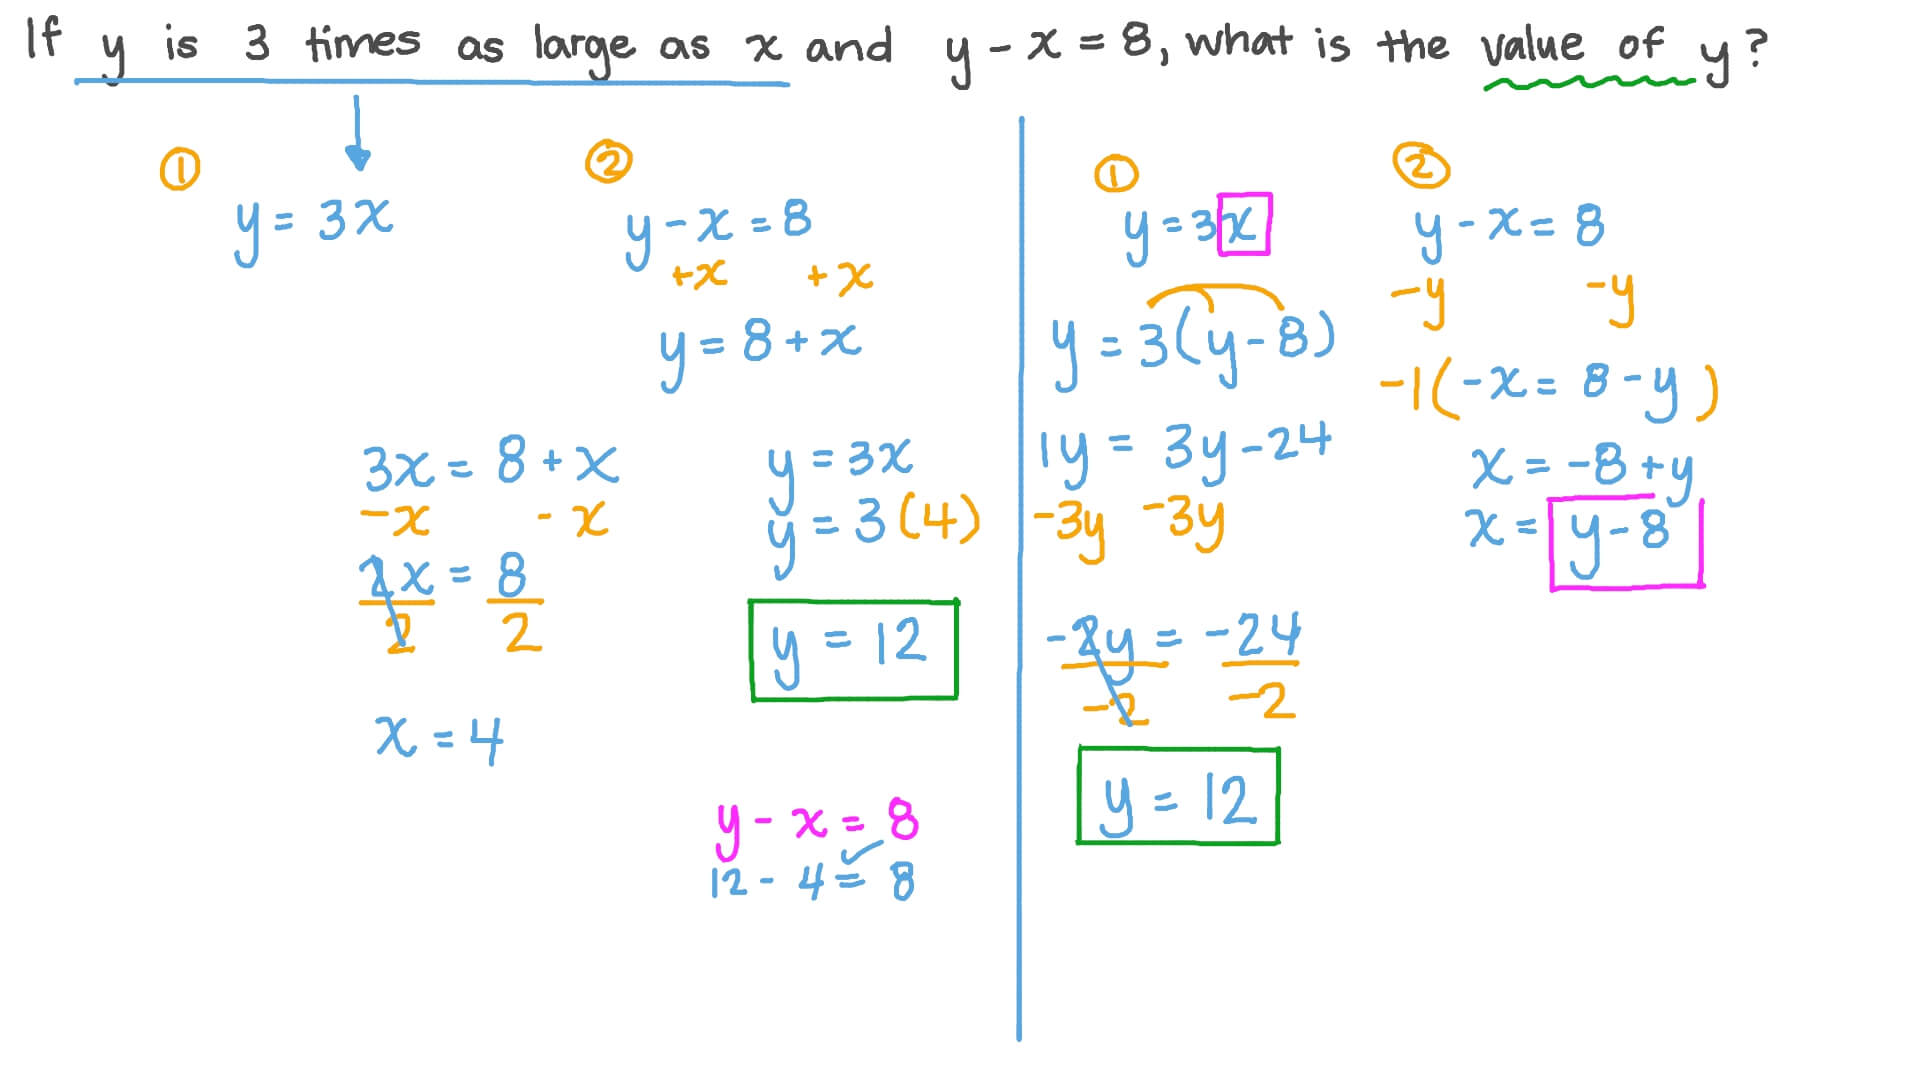 If y is 3 times as large as x and y - x = 8, what is the value of y?
① ②
y = 3x
y - x = 8
+x +x
y = 8 + x
3x = 8 + x
-x - x
2x = 8
2 2
x = 4
y = 3x
y = 3(4)
y = 12
y - x = 8
12 - 4 = 8
① ②
y = 3x
y = 3(y - 8)
1y = 3y - 24
-3y -3y
-2y = -24
-2 -2
y = 12
y - x = 8
-y -y
-1(-x = 8 - y)
x = -8 + y
x = y - 8